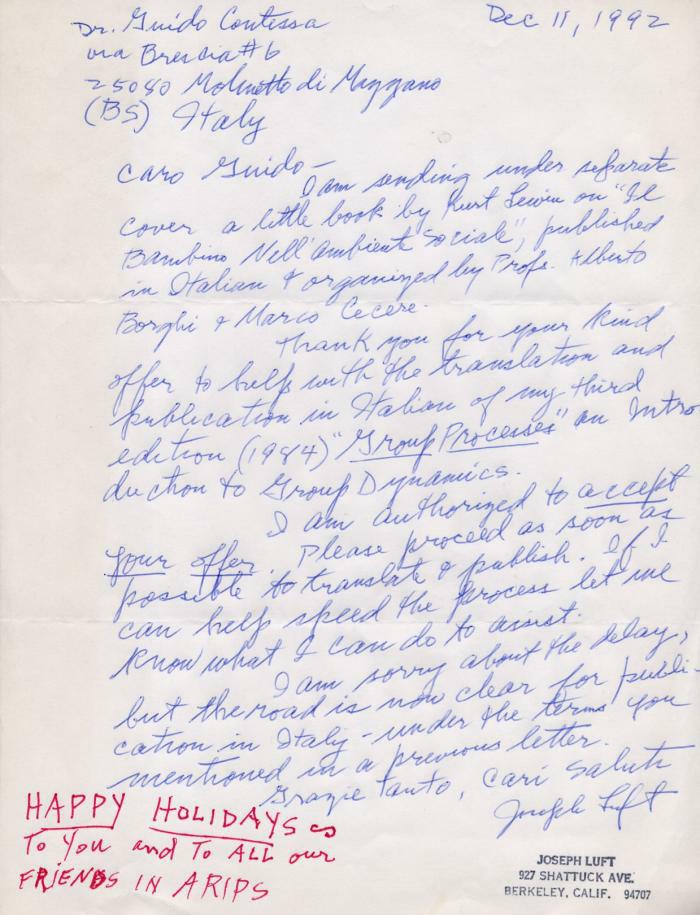 Dr. Guido Contessa
Dec 11, 1992
via Brescia #6
25080 Molinetto di Mazzano
(BS) Italy
Caro Guido –
I am sending under separate
cover a little book by Kurt Lewin on "Il
Bambino Nell'ambiente sociale", published
in Italian & organized by Profs. Alberto
Borghi & Marco Cecere.
Thank you for your kind
offer to help with the translation and
publication in Italian of my third
edition (1984) "Group Processes" an Intro
duction to Group Dynamics.
I am authorized to accept
your offer. Please proceed as soon as
possible to translate & publish. If I
can help speed the process let me
know what I can do to assist.
I am sorry about the delay,
but the road is now clear for publi-
cation in Italy – under the terms you
mentioned in a previous letter.
Grazie tanto, Cari Saluti
Joseph Luft
HAPPY HOLIDAYS
To You and To ALL our
FRIENDS IN ARIPS
JOSEPH LUFT
927 SHATTUCK AVE.
BERKELEY, CALIF. 94707